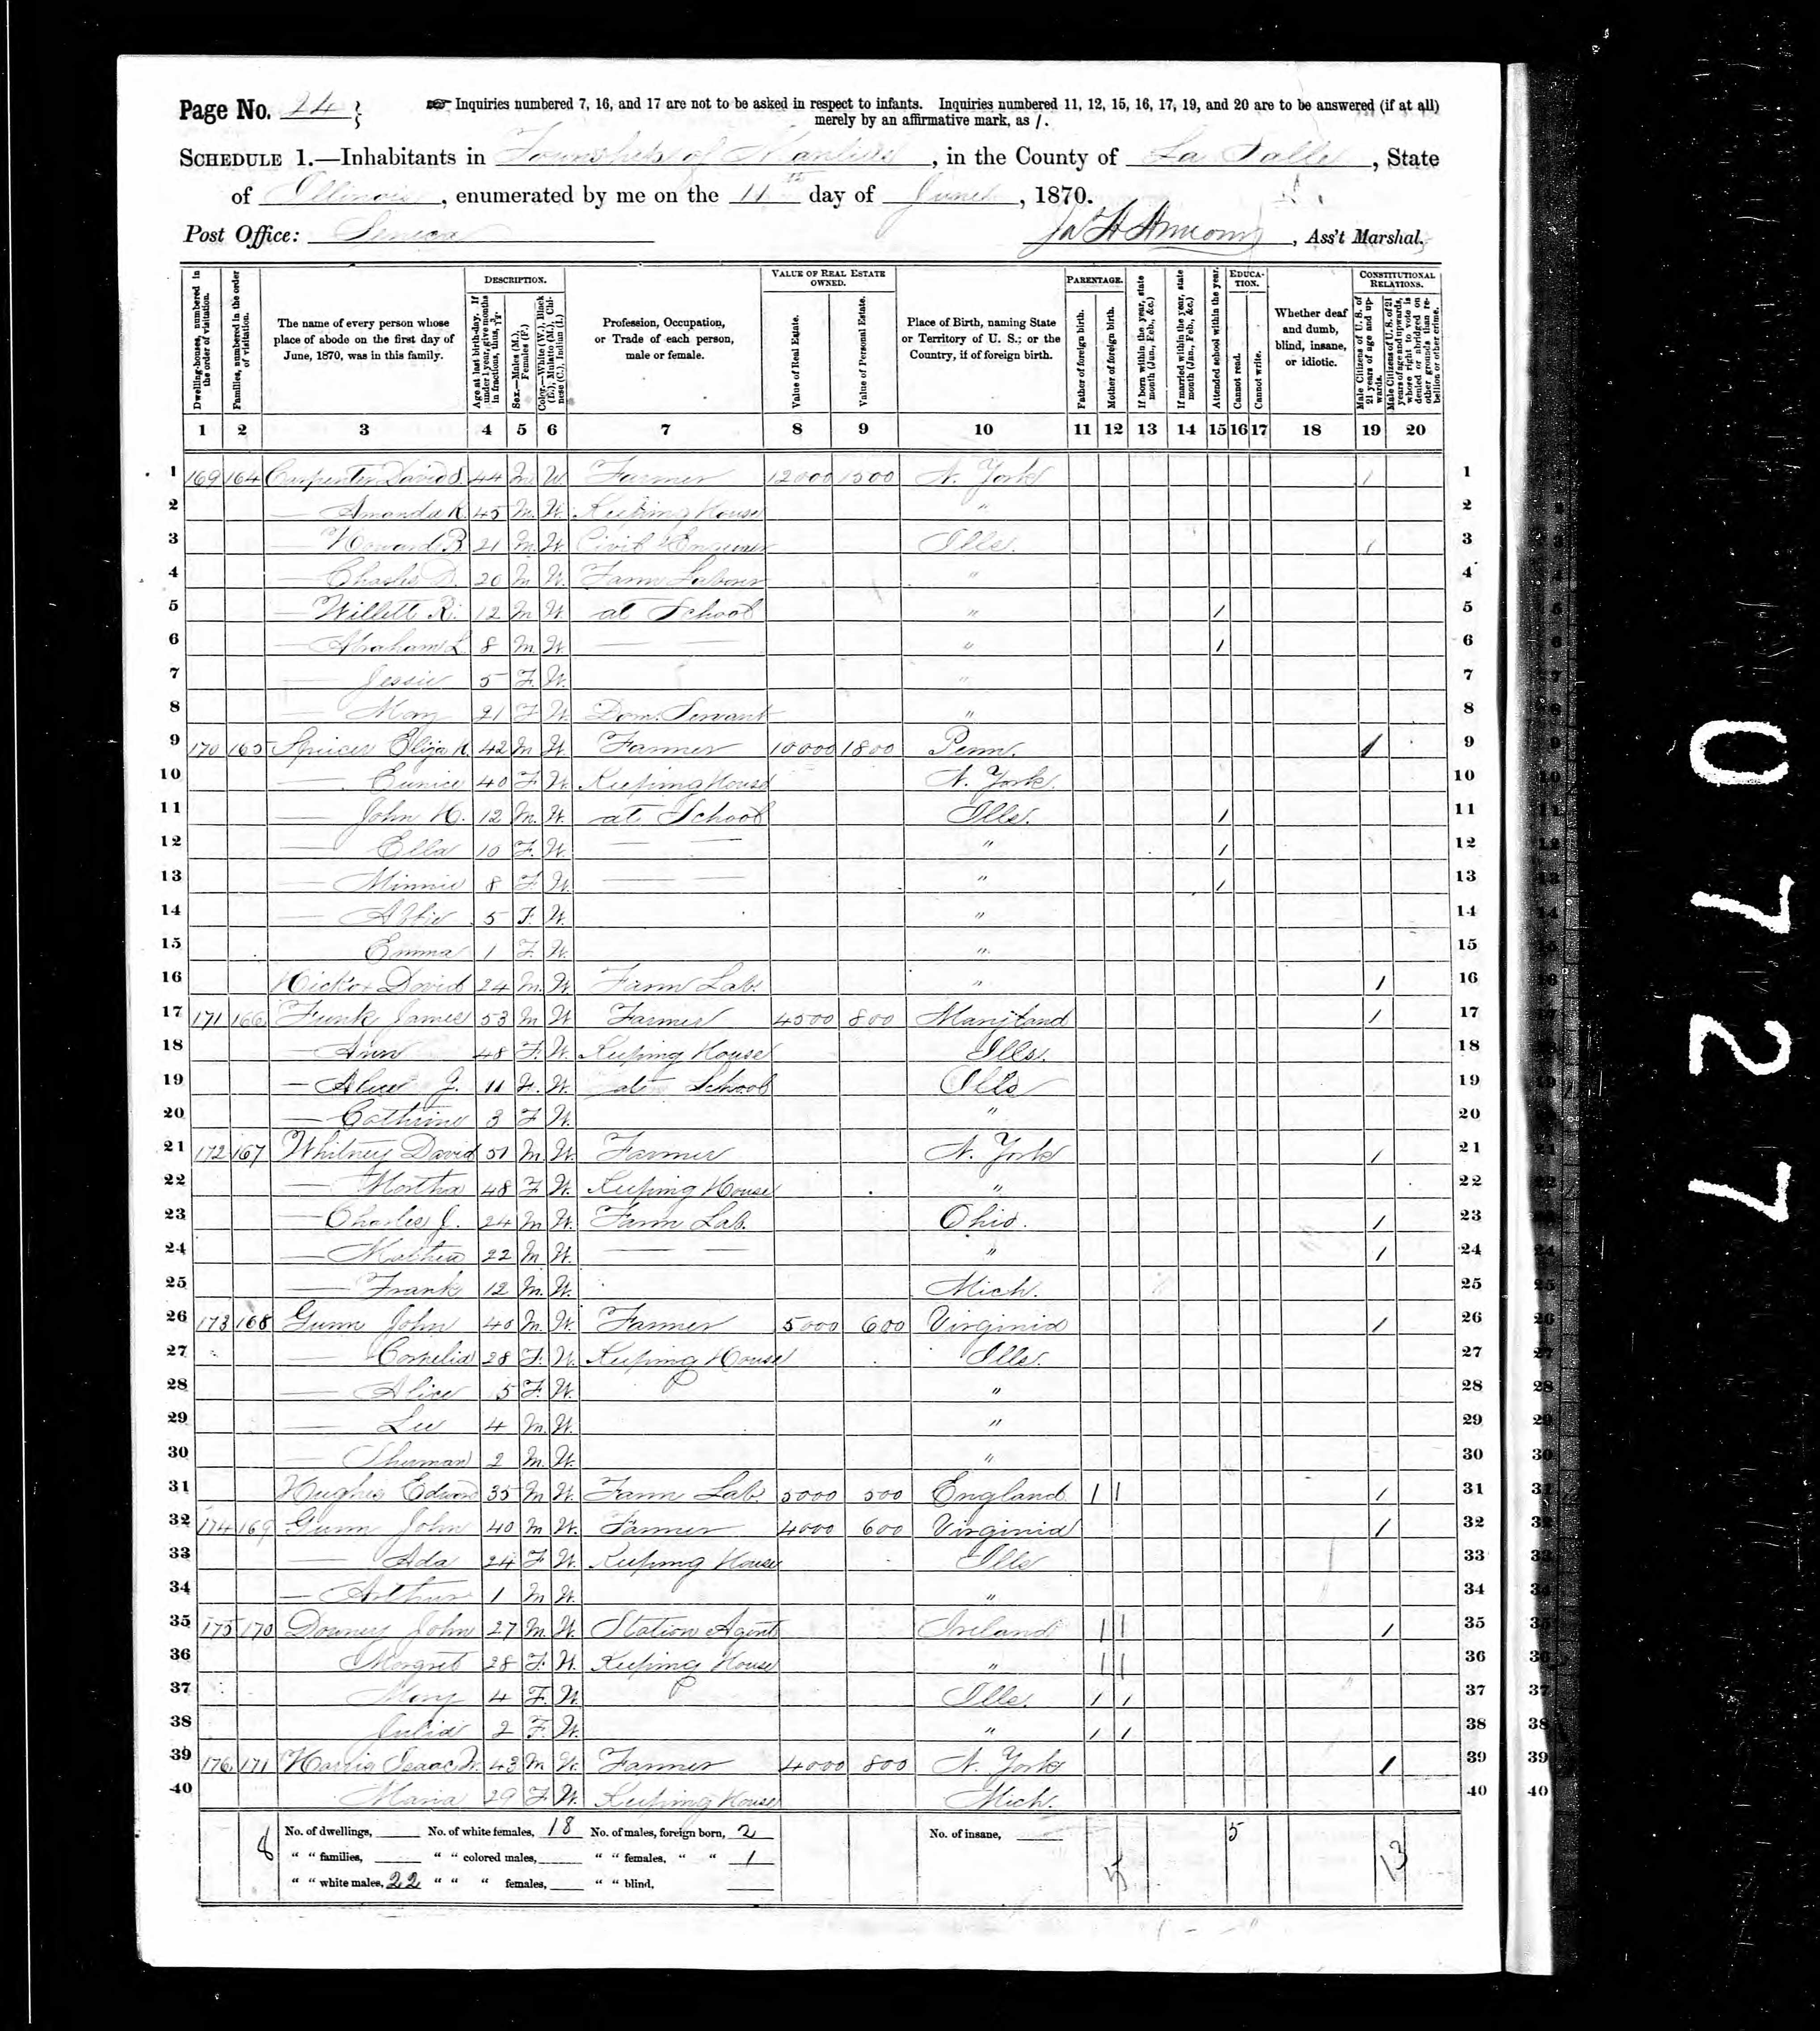 Page No. 24
Inquiries numbered 7, 16, and 17 are not to be asked in respect to infants. Inquiries numbered 11, 12, 15, 16, 17, 19, and 20 are to be answered (if at all)
merely by an affirmative mark, as /.
SCHEDULE 1.—Inhabitants in Township of Manlius, in the County of La Salle, State
of Illinois, enumerated by me on the 11th day of June, 1870.
Post Office: Seneca
, Ass't Marshal.
DESCRIPTION.
VALUE OF REAL ESTATE OWNED.
PARENTAGE.
EDUCATION.
CONSTITUTIONAL RELATIONS.
Dwelling-houses, numbered in the order of visitation.
Families, numbered in the order of visitation.
The name of every person whose place of abode on the first day of June, 1870, was in this family.
Age at last birth-day. If under 1 year, give months in fractions, thus, 3/12.
Sex.—Males (M.), Females (F.)
Color.—White (W.), Black (B.), Mulatto (M.), Chinese (C.), Indian (I.)
Profession, Occupation, or Trade of each person, male or female.
Value of Real Estate.
Value of Personal Estate.
Place of Birth, naming State or Territory of U. S.; or the Country, if of foreign birth.
Father of foreign birth.
Mother of foreign birth.
If born within the year, state month (Jan., Feb., &c.)
If married within the year, state month (Jan., Feb., &c.)
Attended school within the year.
Cannot read.
Cannot write.
Whether deaf and dumb, blind, insane, or idiotic.
Male Citizens of U. S. of 21 years of age and upwards.
Male Citizens of U. S. of 21 years of age and upwards, whose right to vote is denied or abridged on other grounds than rebellion or other crime.
1 2 3 4 5 6 7 8 9 10 11 12 13 14 15 16 17 18 19 20
1 169 164 Carpenter David S. 44 M W. Farmer 12000 1500 N. York / 1
2 — Amanda K. 45 M. W. Keeping House " 2
3 — Howard B. 21 M. W. Civil Engineer Ills. / 3
4 — Charles D. 20 M W. Farm Laborer " 4
5 — Willett R. 12 M W. at School " / 5
6 — Abraham L. 8 M W. — " / 6
7 — Jessie 5 F. W. " 7
8 — Mary 21 F W. Dom. Servant " 8
9 170 165 Spicer Eliza K. 42 M W. Farmer 10000 1800 Penn. / 9
10 — Eunice 40 F. W. Keeping House N. York. 10
11 — John H. 12 M. W. at School Ills. / 11
12 — Ella 10 F. W. — — " / 12
13 — Minnie 8 F W. — — " / 13
14 — Abbie 5 F. W. " 14
15 Emma 1 F. W. " 15
16 Hickox David 24 M. W. Farm Lab. " / 16
17 171 166 Funk James 53 M W Farmer 4500 800 Maryland / 17
18 — Ann 48 F. W. Keeping House Ills. 18
19 — Alice J. 11 F. W. at School Ills 19
20 — Cathrine 3 F W. " 20
21 172 167 Whitney David 51 M. W. Farmer N. York / 21
22 — Martha 48 F W. Keeping House " 22
23 — Charles J. 24 M W. Farm Lab. Ohio. / 23
24 — Mathew 22 M W. — — " / 24
25 — Frank 12 M. W. Mich. 25
26 173 168 Gunn John 40 M. W. Farmer 5000 600 Virginia / 26
27 — Cornelia 28 F. W. Keeping House Ills. 27
28 — Alice 5 F. W. " 28
29 — Lee 4 M. W. " 29
30 — Sherman 2 M. W. " 30
31 Hughes Edward 35 M W. Farm Lab. 5000 500 England / / / 31
32 174 169 Gunn John 40 M W. Farmer 4000 600 Virginia / 32
33 — Ada 24 F W. Keeping House Ills 33
34 — Arthur 1 M W. " 34
35 175 170 Downey John 27 M. W. Station Agent Ireland / / / 35
36 Margret 28 F. W. Keeping House " / / 36
37 Mary 4 F. W. Ills. / / 37
38 Julia 2 F. W. " / / 38
39 176 171 Harris Isaac W. 43 M W. Farmer 4000 800 N. York / 39
40 Maria 29 F. W. Keeping House Mich. 40
8 No. of dwellings, No. of white females, 18 No. of males, foreign born, 2 No. of insane, 5
" " families, " " colored males, " " females, " " 1 5 13
" " white males, 22 " " " females, " " blind,
0727